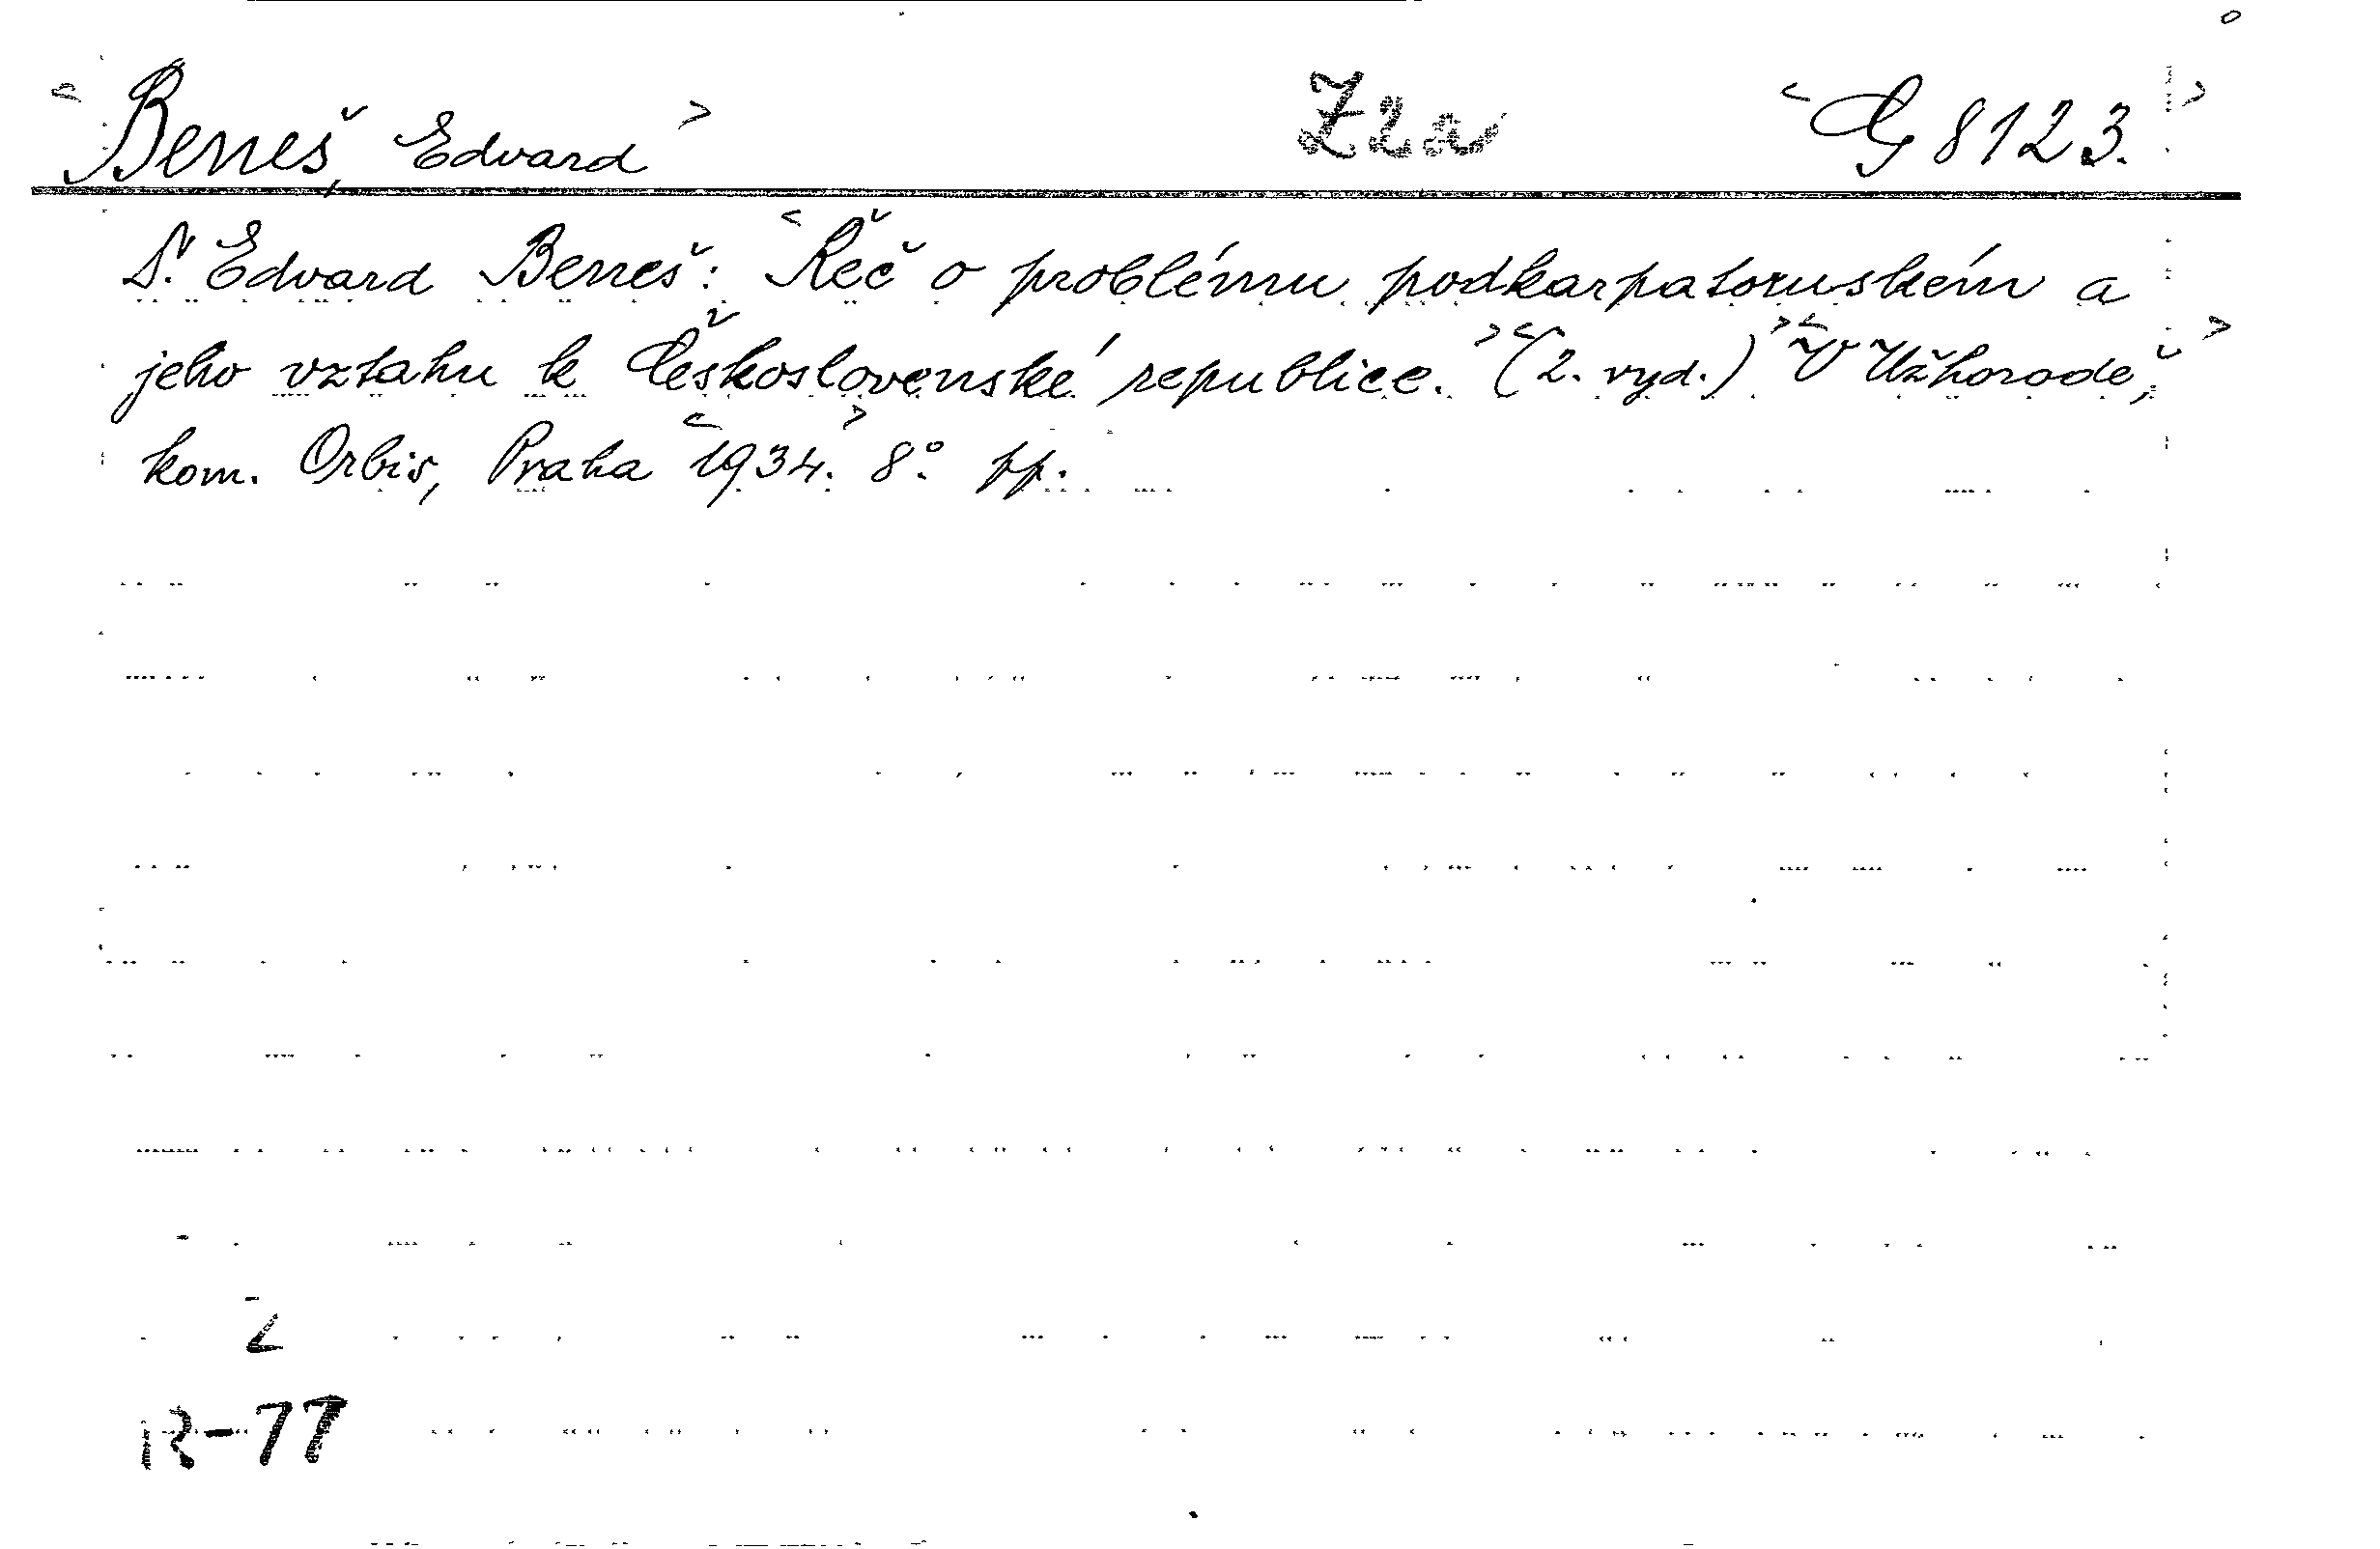 Beneš, Edvard Z2a G 8123.
Dr. Edvard Beneš: Řeč o problému podkarpatoruském a
jeho vztahu k Československé republice. (2. vyd.) V Užhorodě,
kom. Orbis, Praha 1934. 8° pp.
2
R-77